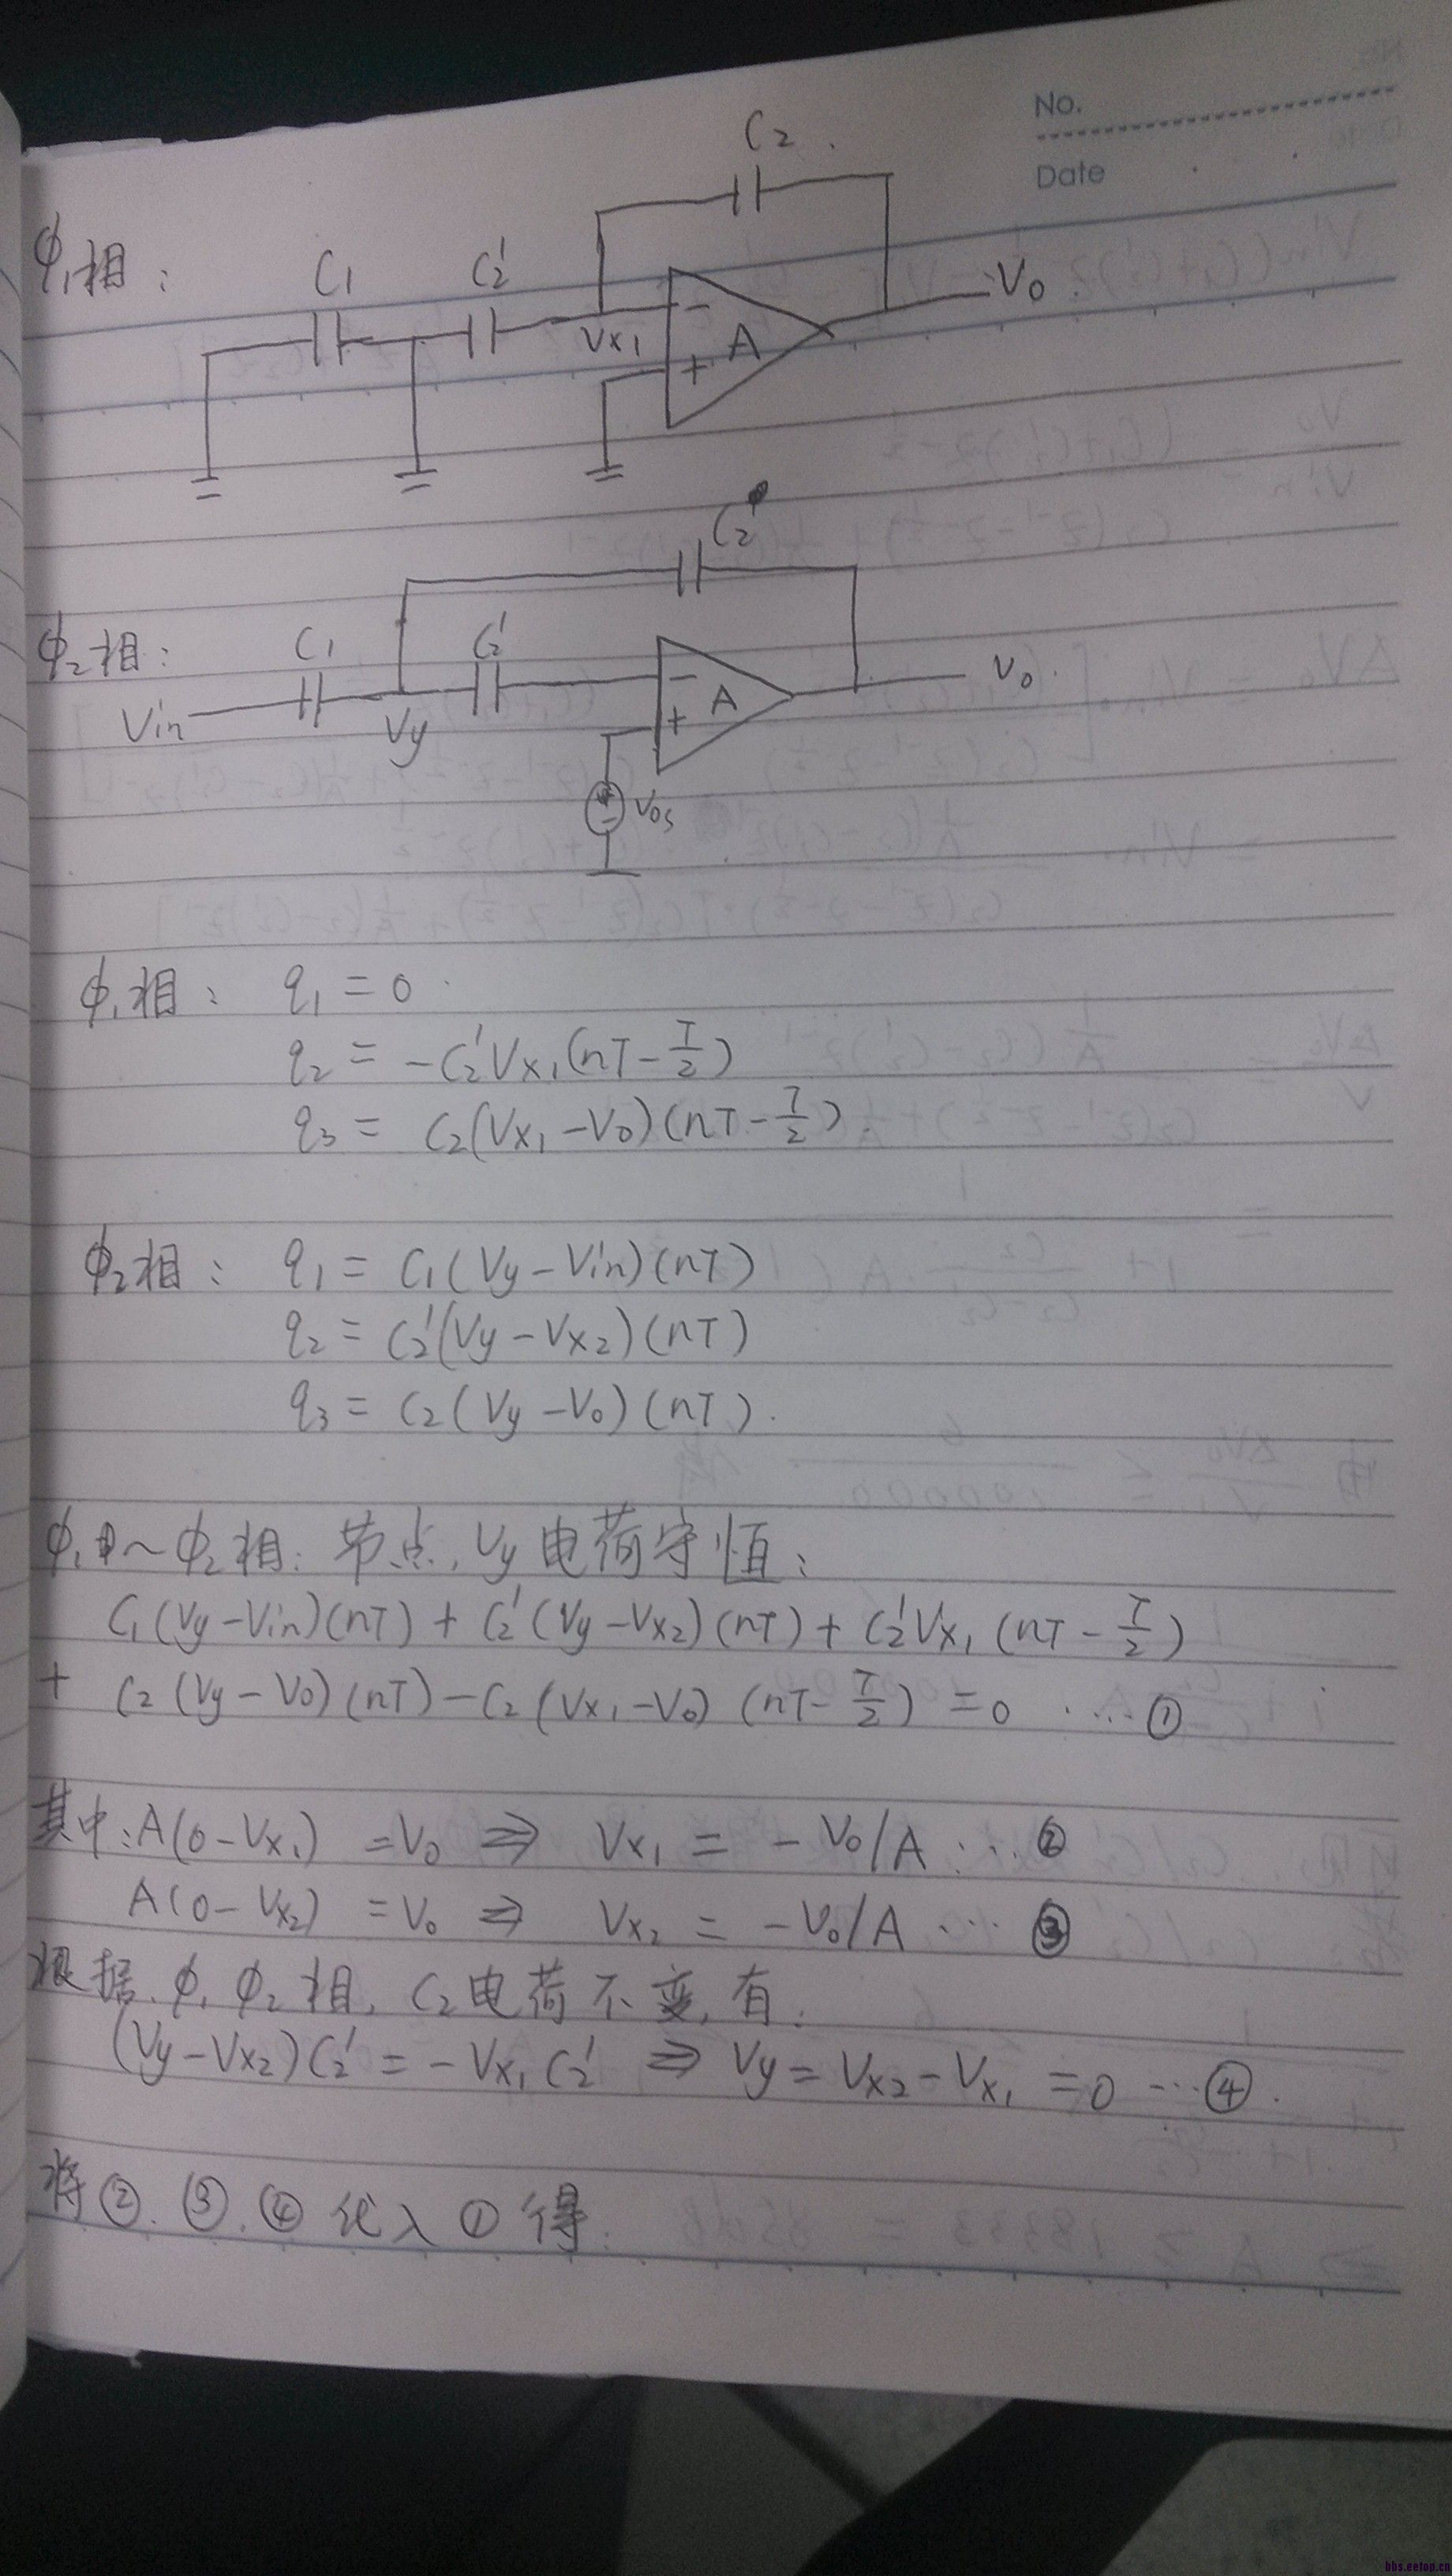 No.
Date
C2
ϕ1相:
C1
C2'
Vx1
-
+
A
V0
C2
ϕ2相:
C1
C2'
Vin
Vy
-
+
A
V0
Vos
ϕ1相: q1 = 0
q2 = -C2'Vx1(nT - T/2)
q3 = C2(Vx1 - V0)(nT - T/2).
ϕ2相: q1 = C1(Vy - Vin)(nT)
q2 = C2'(Vy - Vx2)(nT)
q3 = C2(Vy - V0)(nT).
ϕ1~ϕ2相: 节点, Vy电荷守恒:
C1(Vy-Vin)(nT) + C2'(Vy-Vx2)(nT) + C2'Vx1(nT - T/2)
+ C2(Vy-V0)(nT) - C2(Vx1-V0)(nT - T/2) = 0 ····①
其中: A(0-Vx1) = V0 ⇒ Vx1 = -V0/A ···②
A(0-Vx2) = V0 ⇒ Vx2 = -V0/A ···③
根据, ϕ1 ϕ2相, C2电荷不变, 有:
(Vy-Vx2)C2' = -Vx1C2' ⇒ Vy = Vx2-Vx1 = 0 ···④.
将②.③.④代入①得:
bbs.eetop.cn